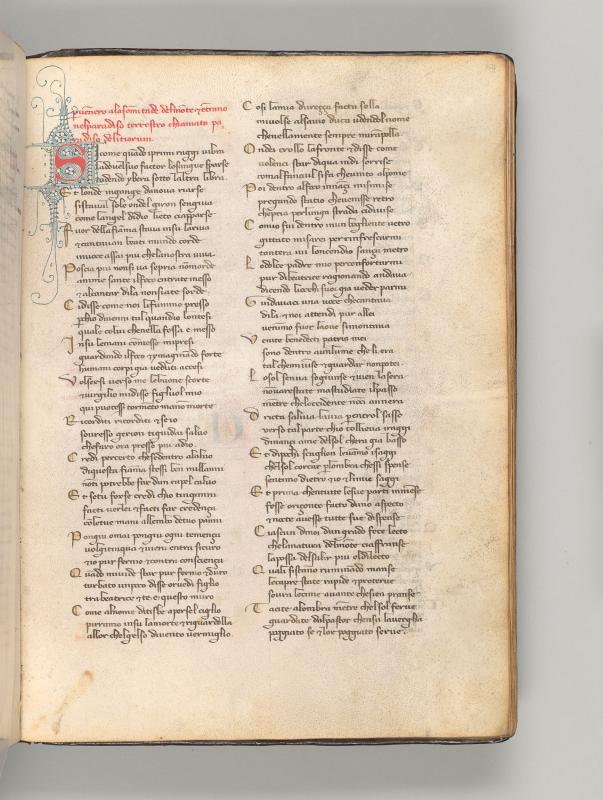 Puenero alasomitade delmote & etrano
nelparadiso terrestro chiamato pa
radiso delitiarum
Si come quado iprimi raggi uibra
ladouelsuo factor losangue sparse
cadendo ybero sotto laltra libra
Et londe ingonge danoua riarse
sistaual sole ondel giron sengiua
come langel didio lieto ciapparse
Fuor dellafiama staua insu lariua
& cantauan beati mundo corde
inuoce assai piu chelanostra uiua
Poscia piu nonsi ua sepria nomorde
anime sante ilfoco entrate inesso
& alcantar dila nonsiate sorde
Cidisse come noi lifummo presso
perchio diuenni tal quandio lontesi
quale colui chenella fossa e messo
Insu lemani comesse mipresi
guardando ilfoco & ymaginado forte
humani corpi gia ueduti accesi
Volsersi uerso me lebuone scorte
& uirgilio mi disse figliuol mio
qui puoesser tormeto mano morte
Ricorditi ricorditi & seio
souresso gerion tiguidai saluo
chefaro ora presso piu adio
Credi percerto chesedentro alaluo
diquesta fiama stessi ben millanni
noti potrebbe far dun capel caluo
Et setu forse credi chio tinganni
facti uerlei & facti far credenza
coletue mani allembo detuo panni
Pongiu omai pongiu ogni temenza
uolgitinqua & uieni entra sicuro
& io pur fermo & contra conscienza
Quado miuide star pur fermo & duro
turbato unpoco disse oruedi figlio
tra beatrice & te e questo muro
Come alnome ditisbe aperse el ciglio
piramo insu lamorte & riguardolla
allor chelgelso diuento uermiglio
Cosi lamia dureza facta solla
miuolse alsauio duca udendel nome
chenellamente sempre mirapolla
Ondei crollo lafronte & disse come
volenci star diqua indi sorrise
comalfanciul sifa cheuinto alpome
Poi dentro alfoco innazi mimise
pregando statio cheuenisse retro
chepria perlunga strada cidiuise
Comio fui dentro inun bogliente uetro
gittato misarei per rinfrescarmi
tantera iui loncendio sanza metro
Lo dolce padre mio perconfortarmi
pur dibeatrice ragionando andaua
dicendo liocchi suoi gia ueder parmi
Guidauaci una uoce checantaua
dila & noi attendi pur allei
uenimo fuor laoue simontaua
Venite benedicti patris mei
sono dentro aunlume cheli era
tal chemiuise & guardar nonpotei
Losol senua sogiunse & uien lasera
nouarestate mastudiate ilpasso
metre chelocidente non annera
Dricta saliua lauia perentrol sasso
uerso tal parte chio toglieua iraggi
dinanzi ame delsol chera gia basso
Et dipochi scaglion leuamo isaggi
chelsol corcar perlombra chessi spense
sentimo dietro & io & limie saggi
Et prima chentutte lesue parti inmese
fosse orizonte facto duno aspecto
& nocte auesse tutte sue dispense
Ciascun dinoi dun grado fece lecto
chelanatura delmote ciaffranse
lapossa delsalir piu eldilecto
Quali sistanno ruminado manse
lecapre state rapide & proterue
soura lecime auante chesien pranse
Tacite alombra metre chelsol ferue
guardate dalpastor chensu lauergha
poggiato se & lor poggiato serue